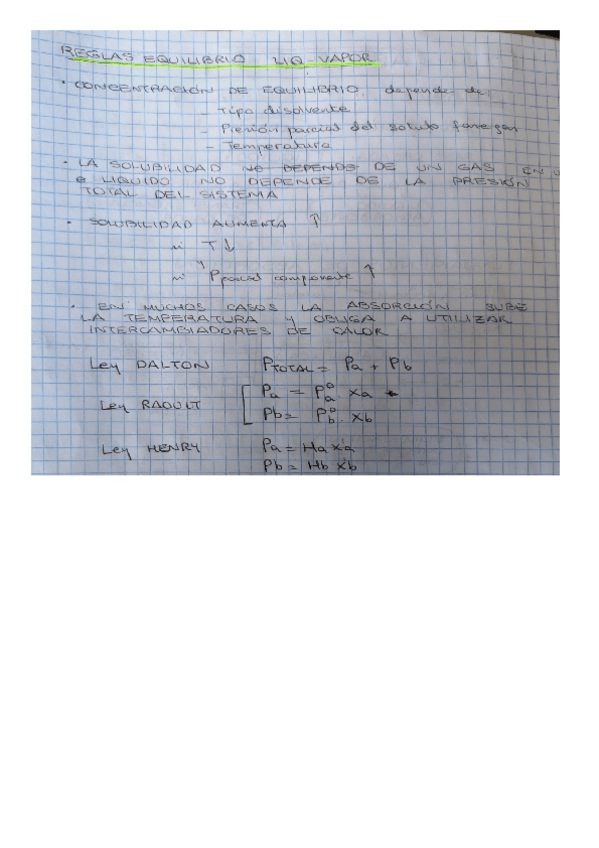 REGLAS EQUILIBRIO LIQ-VAPOR
• CONCENTRACIÓN DE EQUILIBRIO depende de:
- Tipo disolvente
- Presión parcial del soluto fase gas
- Temperatura
• LA SOLUBILIDAD NO DEPENDE DE UN GAS EN U
LIQUIDO NO DEPENDE DE LA PRESIÓN
TOTAL DEL SISTEMA
• SOLUBILIDAD AUMENTA ↑
si T↓
si Pparcial componente ↑
• EN MUCHOS CASOS LA ABSORCIÓN SUBE
LA TEMPERATURA y OBLIGA A UTILIZAR
INTERCAMBIADORES DE CALOR
Ley DALTON PTOTAL = Pa + Pb
Ley RAOULT Pa = Pa° Xa
Pb = Pb° . Xb
Ley HENRY Pa = Ha Xa
Pb = Hb Xb